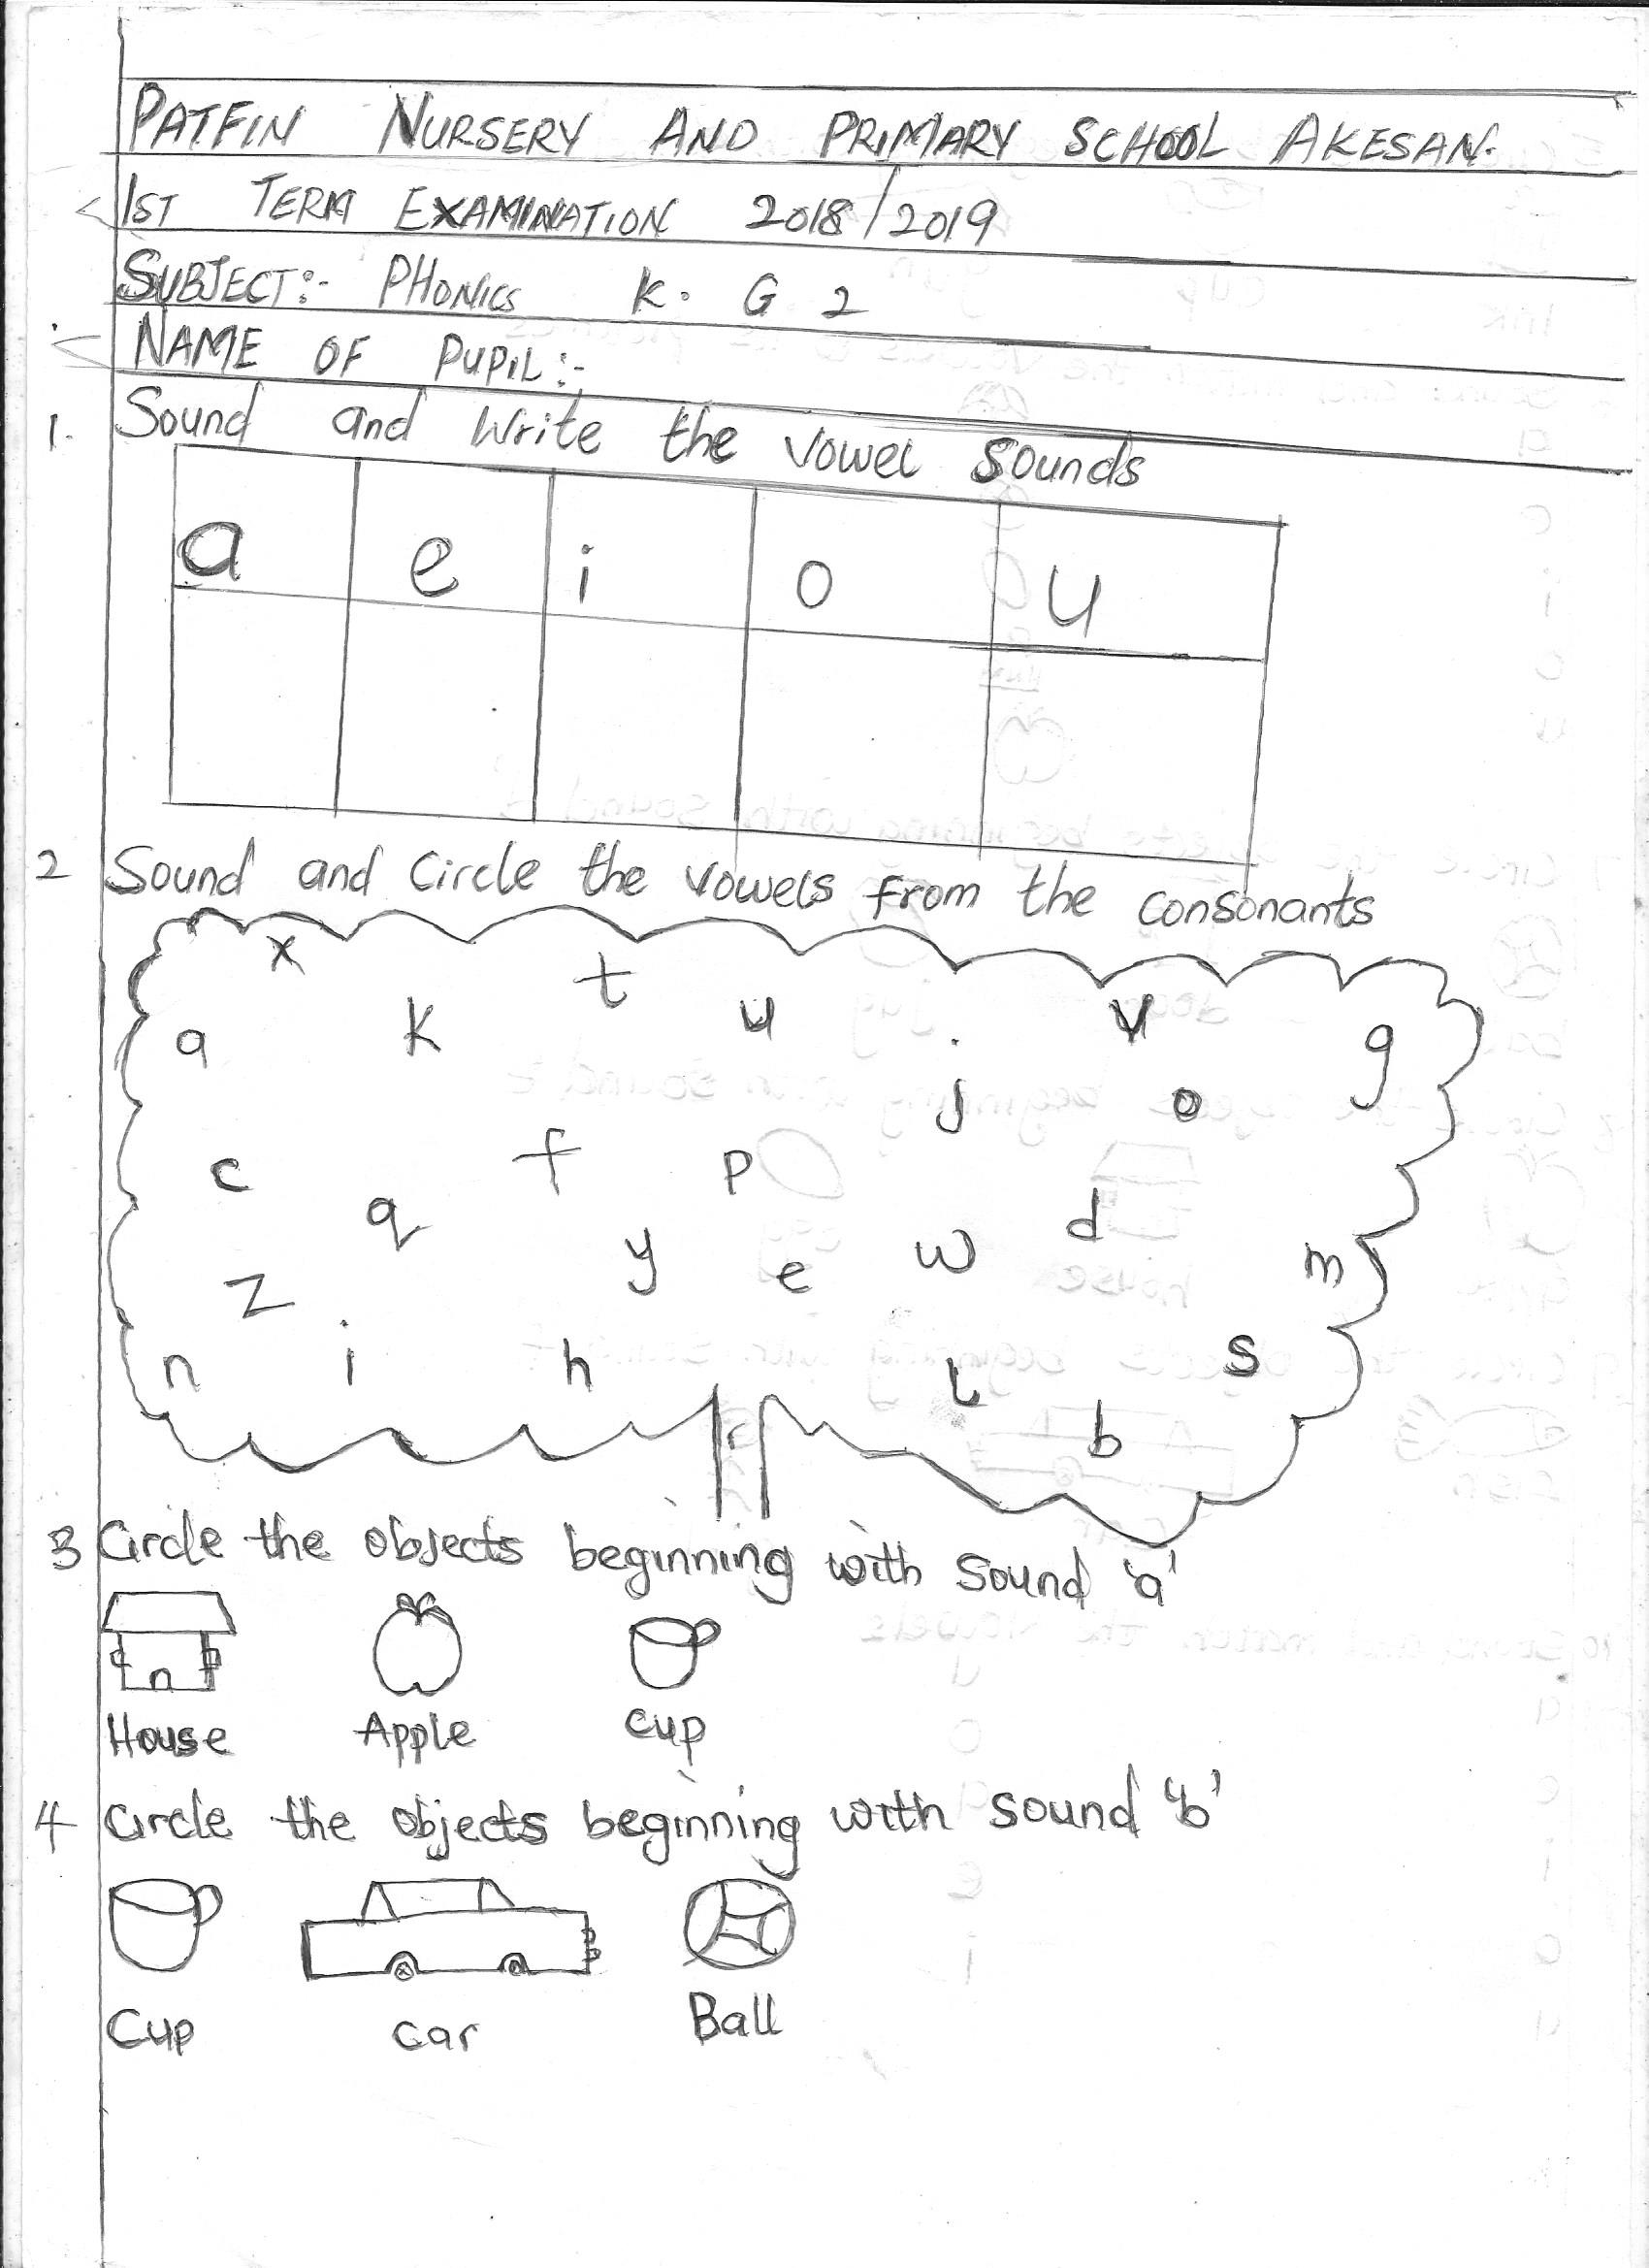 PATFIN NURSERY AND PRIMARY SCHOOL AKESAN.
1ST TERM EXAMINATION 2018/2019
SUBJECT:- PHONICS K. G 2
NAME OF PUPIL:-
1. Sound and Write the vowel sounds
a e i o u
2 Sound and circle the vowels from the consonants
x t
a k u v g
j o
c f p
q d
y e w m
z
n i h l s
r b
3 Circle the objects beginning with sound 'a'
House Apple cup
4 Circle the objects beginning with sound 'b'
Cup car Ball